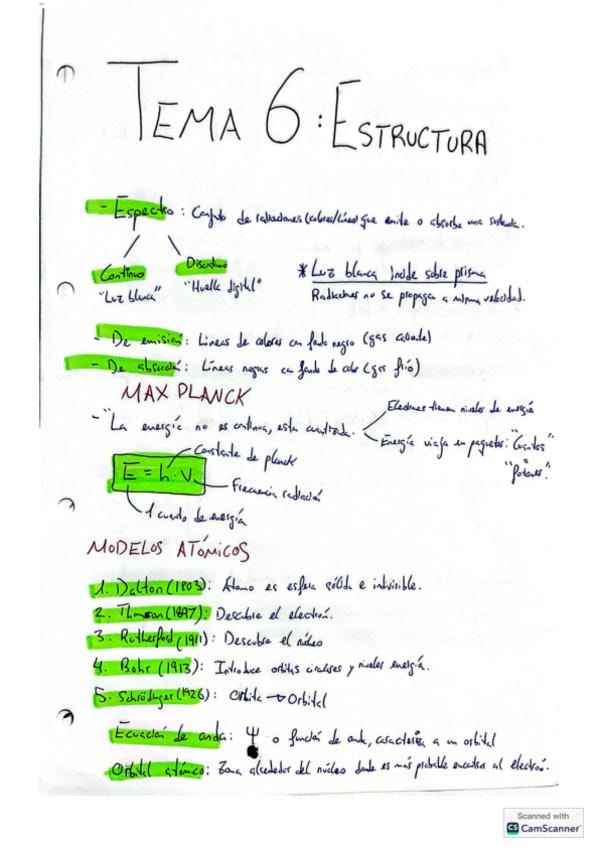 TEMA 6: ESTRUCTURA
- Espectro: Conjunto de radiaciones (colores/líneas) que emite o absorbe una sustancia.
Continuo
"Luz blanca"
Discontinuo
"Huella digital"
* Luz blanca incide sobre prisma
Radiaciones no se propagan a misma velocidad.
- De emisión: Líneas de colores con fondo negro (gas caliente)
- De absorción: Líneas negras con fondo de color (gas frío)
MAX PLANCK
- "La energía no es continua, esta cuantizada.
Electrones tienen niveles de energía
Energía viaja en paquetes: "Cuantos"
"Fotones".
Constante de planck
E = h · ν
Frecuencia radiación
1 cuanto de energía
MODELOS ATÓMICOS
1. Dalton (1803): Átomo es esfera sólida e indivisible.
2. Thomson (1897): Descubre el electrón.
3. Rutherford (1911): Descubre el núcleo
4. Bohr (1913): Introduce orbitas circulares y niveles energía.
5. Schrödinger (1926): Orbita → Orbital
Ecuación de onda: Ψ o función de onda, caracteriza a un orbital
Orbital atómico: Zona alrededor del núcleo donde es más probable encontrar al electrón.
Scanned with
CS CamScanner